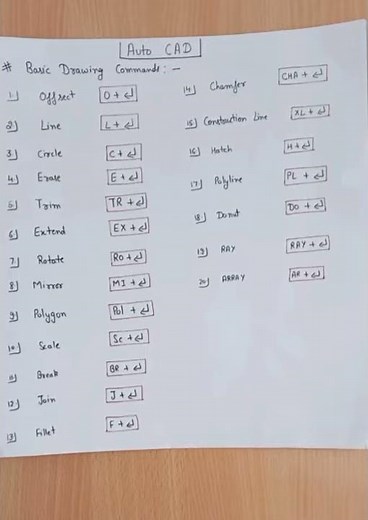 Auto CAD
# Basic Drawing Commands:-
1) Offset O + ↵
2) Line L + ↵
3) Circle C + ↵
4) Erase E + ↵
5) Trim TR + ↵
6) Extend EX + ↵
7) Rotate RO + ↵
8) Mirror MI + ↵
9) Polygon Pol + ↵
10) Scale Sc + ↵
11) Break BR + ↵
12) Join J + ↵
13) Fillet F + ↵
14) Chamfer CHA + ↵
15) Construction Line XL + ↵
16) Hatch H + ↵
17) Polyline PL + ↵
18) Donut DO + ↵
19) RAY RAY + ↵
20) ARRAY AR + ↵